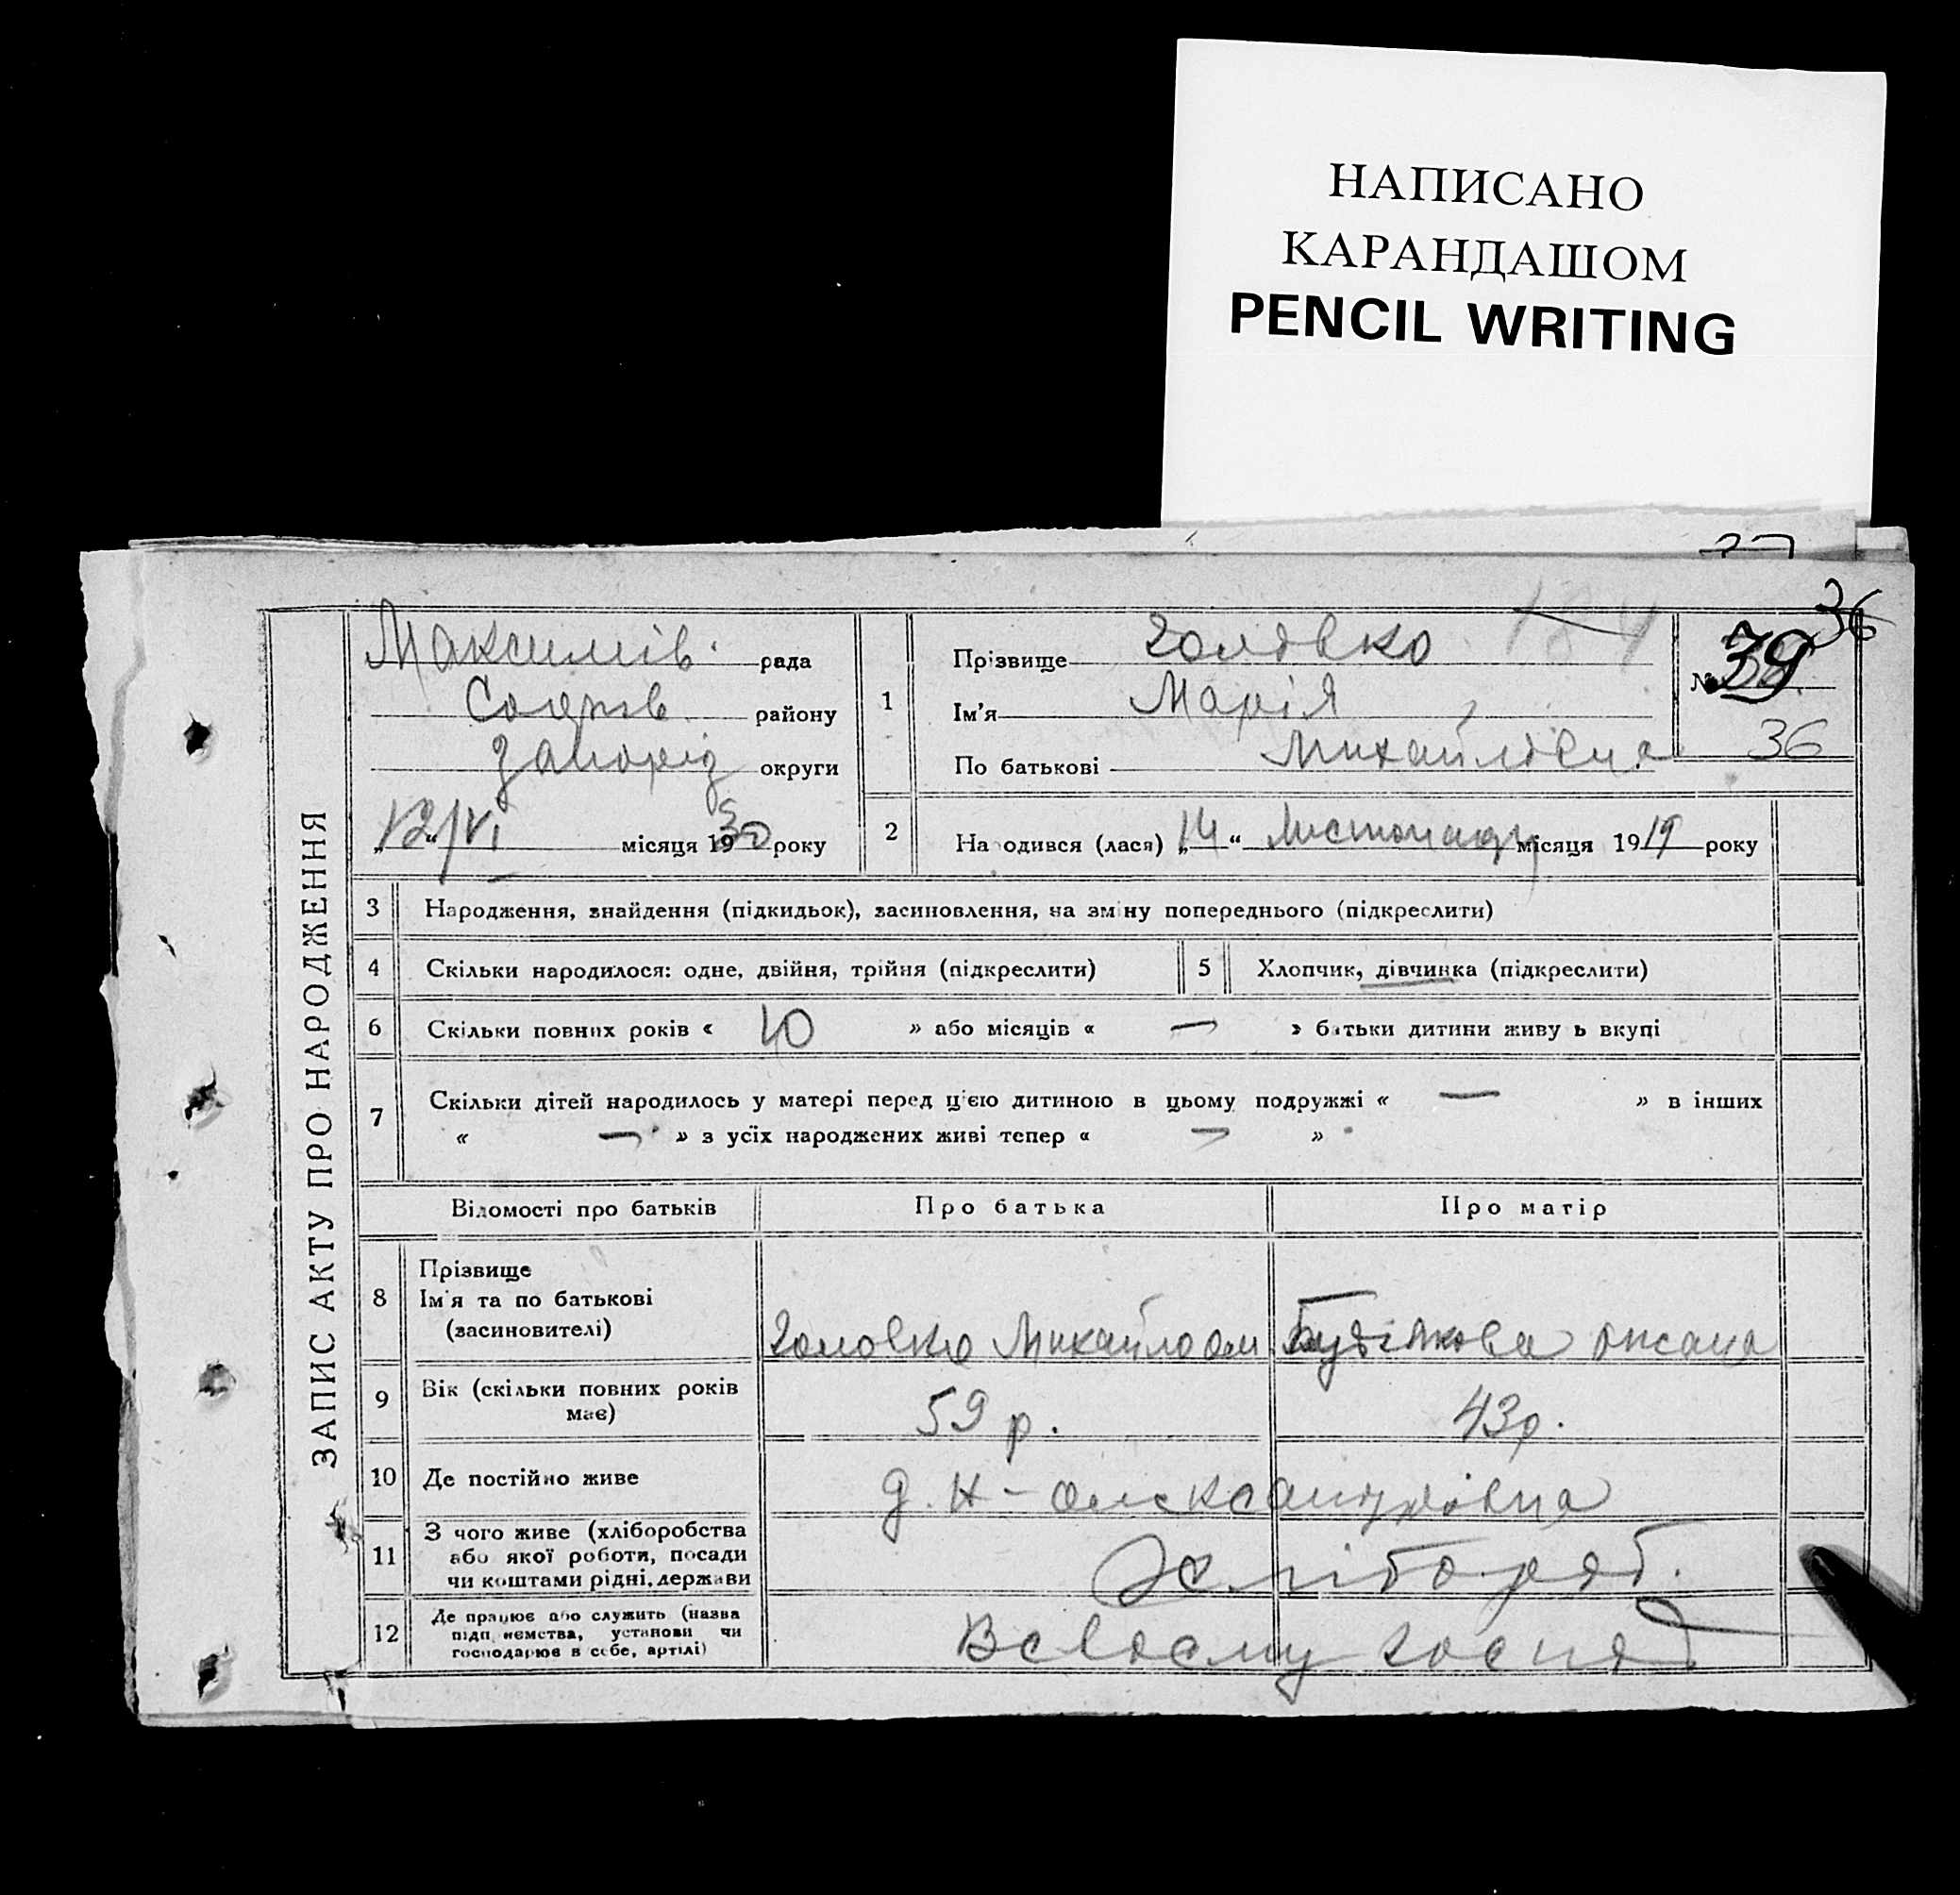 НАПИСАНО
КАРАНДАШОМ
PENCIL WRITING
36
ЗАПИС АКТУ ПРО НАРОДЖЕННЯ
Максимів. рада
району
Запоріз округи
„12“/VI місяця 1930 року
1
Прізвище Головко
Ім'я Марія
По батькові Михайлівна
№ 39
36
2 На одився (лася) „14“ листопада місяця 1919 року
3 Народження, знайдення (підкидьок), засиновлення, на зміну попереднього (підкреслити)
4 Скільки народилося: одне, двійня, трійня (підкреслити) 5 Хлопчик, дівчинка (підкреслити)
6 Скільки повних років « 10 » або місяців « — » батьки дитини живу ь вкупі
7 Скільки дітей народилось у матері перед ц'єю дитиною в цьому подружжі « — » в інших
« — » з усіх народжених живі тепер « — »
Відомості про батьків Про батька Про матір
8 Прізвище
Ім'я та по батькові
(засиновителі)
Головко Михайло Ом Оксана
9 Вік (скільки повних років
має)
59 р. 43 р.
10 Де постійно живе Д. Н-Олександрівна
11 З чого живе (хліборобства
або якої роботи, посади
чи коштами рідні, держави
Хлібороб.
12 Де працює або служить (назва
підп иємства, установи чи
господарює в себе, артілі)
В своєму господ